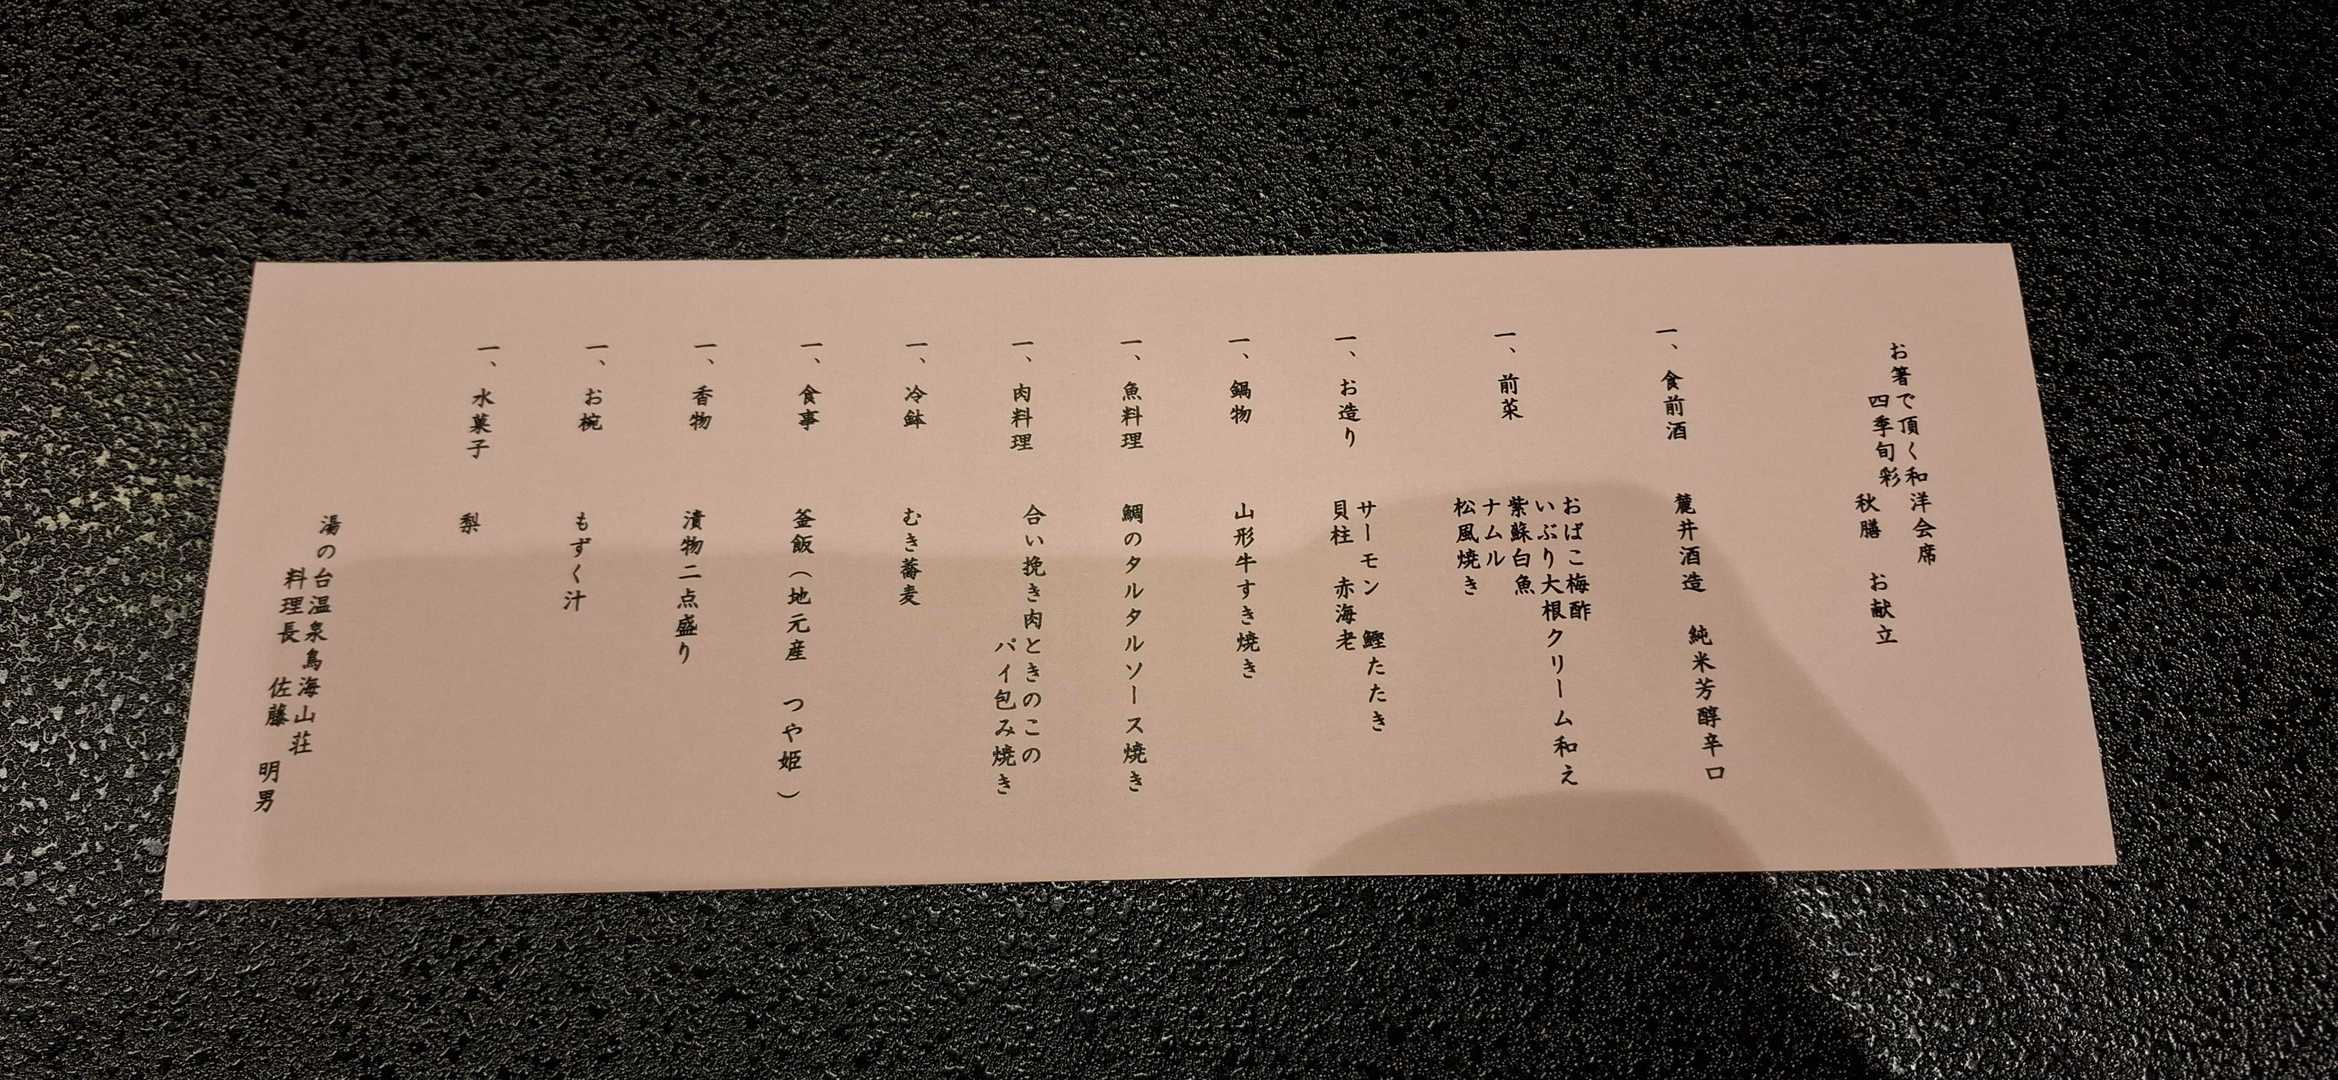 お箸で頂く和洋会席
四季旬彩
秋膳　お献立
一、食前酒　麓井酒造　純米芳醇辛口
一、前菜　おばこ梅酢
いぶり大根クリーム和え
紫蘇白魚
ナムル
松風焼き
一、お造り　サーモン　鰹たたき
貝柱　赤海老
一、鍋物　山形牛すき焼き
一、魚料理　鯛のタルタルソース焼き
一、肉料理　合い挽き肉ときのこの
パイ包み焼き
一、冷鉢　むき蕎麦
一、食事　釜飯（地元産　つや姫）
一、香物　漬物二点盛り
一、お椀　もずく汁
一、水菓子　梨
湯の台温泉鳥海山荘
料理長　佐藤　明男